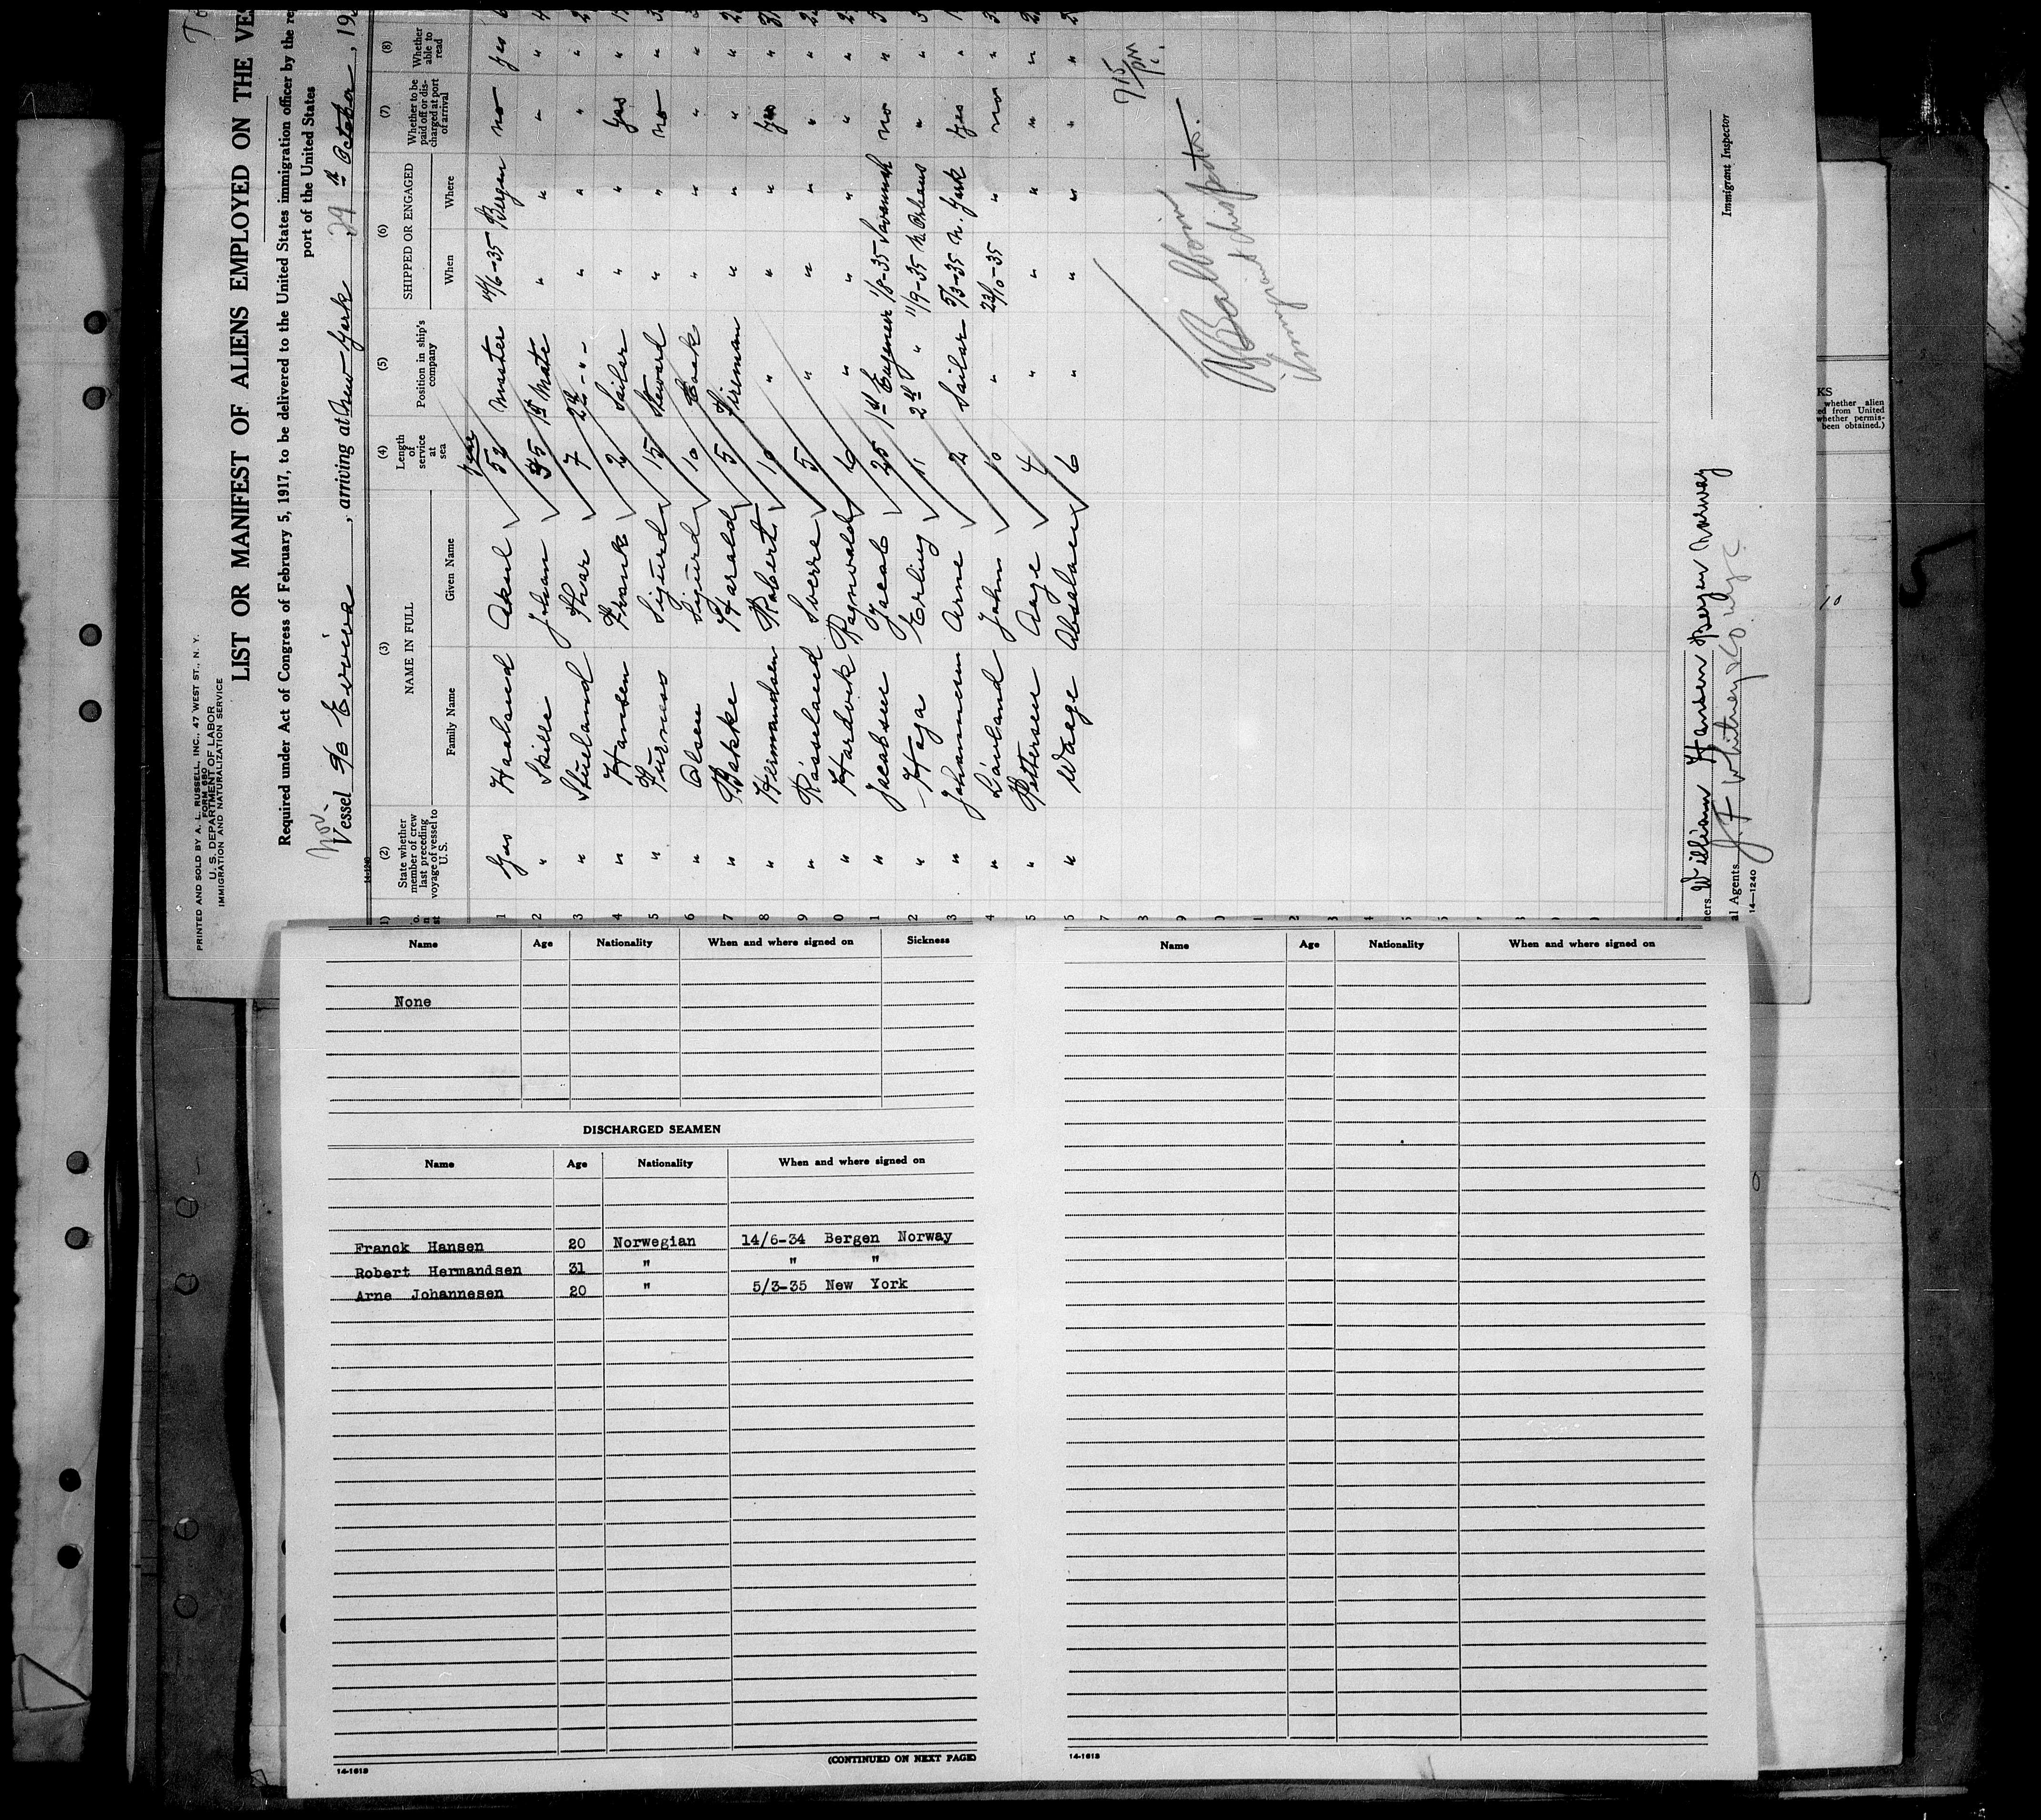 PRINTED AND SOLD BY A. L. RUSSELL, INC., 47 WEST ST., N. Y.
FORM 680
U. S. DEPARTMENT OF LABOR
IMMIGRATION AND NATURALIZATION SERVICE
LIST OR MANIFEST OF ALIENS EMPLOYED ON THE VE
Required under Act of Congress of February 5, 1917, to be delivered to the United States immigration officer by the re
port of the United States
Nor.
Vessel S/S Ervica, arriving at New York 29th October, 19
14-1240
(2) (3) (4) (5) (6) (7) (8)
State whether member of crew last preceding voyage of vessel to U. S.
NAME IN FULL
Family Name Given Name
Length of service at sea
Position in ship's company
SHIPPED OR ENGAGED
When Where
Whether to be paid off or discharged at port of arrival
Whether able to read
1 Yes Haaland Aksel 52 Master 14/6-35 Bergen no Yes
2 " Skille Johan 35 1st Mate " " " "
3 " Stueland Thor 7 2nd -"- " " " "
4 " Hansen Frank 2 Sailor " " Yes "
5 " Furnes Sigurd 15 Steward " " no "
6 " Olsen Sigurd 10 Cook " " " "
7 " Bakke Harald 5 Fireman " " " "
8 " Hermandsen Robert 10 " " " Yes "
9 " Røsseland Sverre 5 " " " " "
0 " Hardvik Ragnvald 6 " " " " "
1 " Jacobsen Jacob 25 1st Engineer 1/8-35 Savannah no "
2 " Haga Erling 11 2nd " 11/9-35 N. Orleans " "
3 " Johannesen Arne 2 Sailor 5/3-35 N. York Yes "
4 " Lønland John 10 " 23/10-35 " no "
5 " Pettersen Aage 4 " " " " "
6 " Waage Absalon 6 " " " " "
7
8
9
0
7 15/PM
Immigrant Inspector.
William Hansen Bergen Norway
al Agents J. F. Whitney & Co. NYC
14—1240
Immigrant Inspector
KS
whether alien
ed from United
whether permis-
been obtained.)
Name Age Nationality When and where signed on Sickness
None
DISCHARGED SEAMEN
Name Age Nationality When and where signed on
Franck Hansen 20 Norwegian 14/6-34 Bergen Norway
Robert Hermandsen 31 " " "
Arne Johannesen 20 " 5/3-35 New York
(CONTINUED ON NEXT PAGE)
14-1613
Name Age Nationality When and where signed on
14-1613